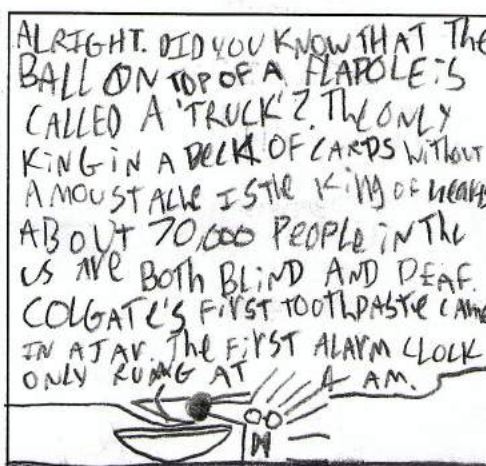 ALRIGHT. DID YOU KNOW THAT THE
BALL ON TOP OF A FLAPOLE iS
CALLED A 'TRUCK'? THE ONLY
KiNG iN A DECK OF CARDS WiTHOUT
A MOUSTACHE IS THE KiNg OF HEARTS
ABOUT 70,000 PEOPLE iN THE
US ARE BOTH BLIND AND DEAF.
COLGATE'S FiRST TOOTHPASTE CAME
IN A JAR. THE FiRST ALARM CLOCK
ONLY RUNG AT 4 AM.